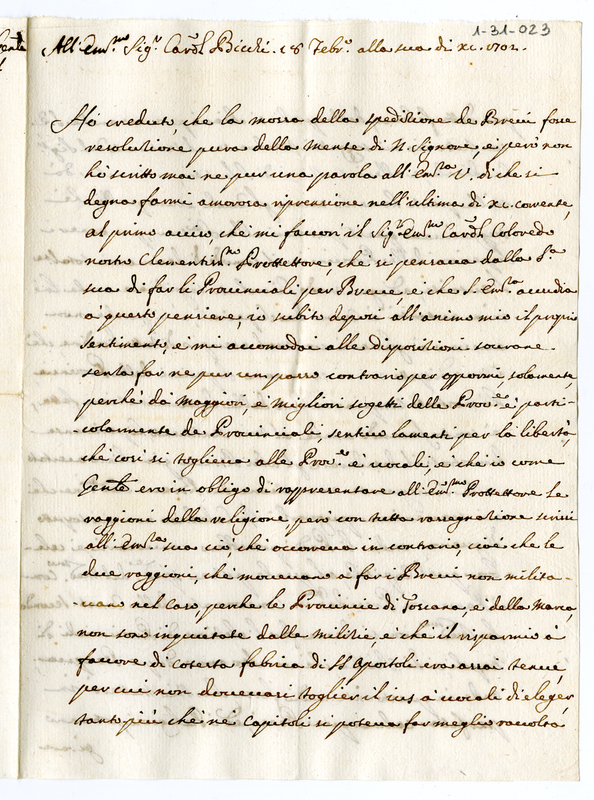 1-31-023
All'Em.mo Sig.r Card.l Bichi. 18 Febr.o alla sua di xi. 1702.
Hò creduto, che la mossa della spedizione de Brevi fosse
resolutione pura della mente di N. Signore, e però non
hò scritto mai ne pur una parola all'Em.za V. di che si
degna farmi amorosa riprensione nell'ultima di xi. corrente,
al primo aviso, che mi favorì il Sig.r Em.mo Card.l Coloredo
nostro Clementiss.mo Prottettore, che si pensava dalla S.tà
sua di far li Provinciali per Breve, e che S. Em.za accudia
a questo pensiere, io subito deposi all'animo mio il proprio
sentimento, e mi accomodai alle dispositioni sourane
senza far ne pur un passo contrario per oppormi, solamente,
perche da Maggiori, e Migliori sogetti delle Prov.e e parti-
colarmente de Provinciali, sentivo lamenti per la libertà,
che così si toglieva alle Prov.e e vocali, e che io come
Gen.le ero in obligo di rappresentare all'Em.mo Prottettore le
raggioni della religione, però con tutta rassegnatione scrissi
all'Em.za sua ciò, che occorreva in contrario, cioè che le
due raggioni, che movevano à far i Brevi non milita-
vano nel caso, perche le Provincie di Toscana, e della Marca,
non sono inquietate dalle militie, e che il risparmio à
favore di cotesta fabrica di SS. Apostoli era assai tenue,
per cui non dovevasi toglier il ius à vocali di eleger,
tanto più che ne Capitoli si poteva far meglio raccolta